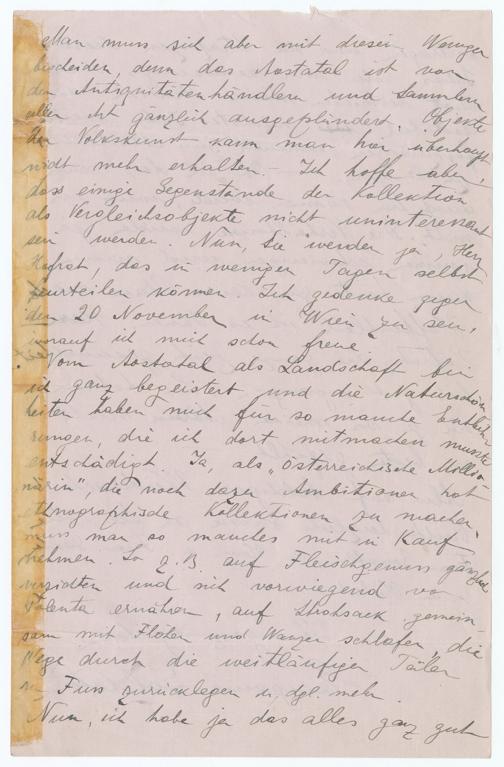 Man muss sich aber mit diesen Wenigen
bescheiden denn das Aostatal ist von
den Antiquitätenhändlern und Sammlern
aller Art gänzlich ausgeplündert. Objekte
der Volkskunst kann man hier überhaupt
nicht mehr erhalten. - Ich hoffe aber,
dass einige Gegenstände der Kollektion
als Vergleichsobjekte nicht uninteressant
sein werden. Nun, Sie werden ja, Herr
Hofrat, das in wenigen Tagen selbst
beurteilen können. Ich gedenke gegen
den 20 November in Wien zu sein,
worauf ich mich schon freue. -
Vom Aostatal als Landschaft bin
ich ganz begeistert und die Naturschön
heiten haben mich für so manche Entbeh
rungen, die ich dort mitmachen musste
entschädigt. Ja, als „österreichische Millio
närin", die noch dazu Ambitionen hat
ethnographische Kollektionen zu machen,
muss man so manches mit in Kauf
nehmen. So z.B. auf Fleischgenuss gänzlich
verzichten und sich vorwiegend von
Polenta ernähren, auf Strohsack gemein-
sam mit Flöhen und Wanzen schlafen, die
Wege durch die weitläufigen Täler
zu Fuss zurücklegen u. dgl. mehr.
Nun, ich habe ja das alles ganz gut